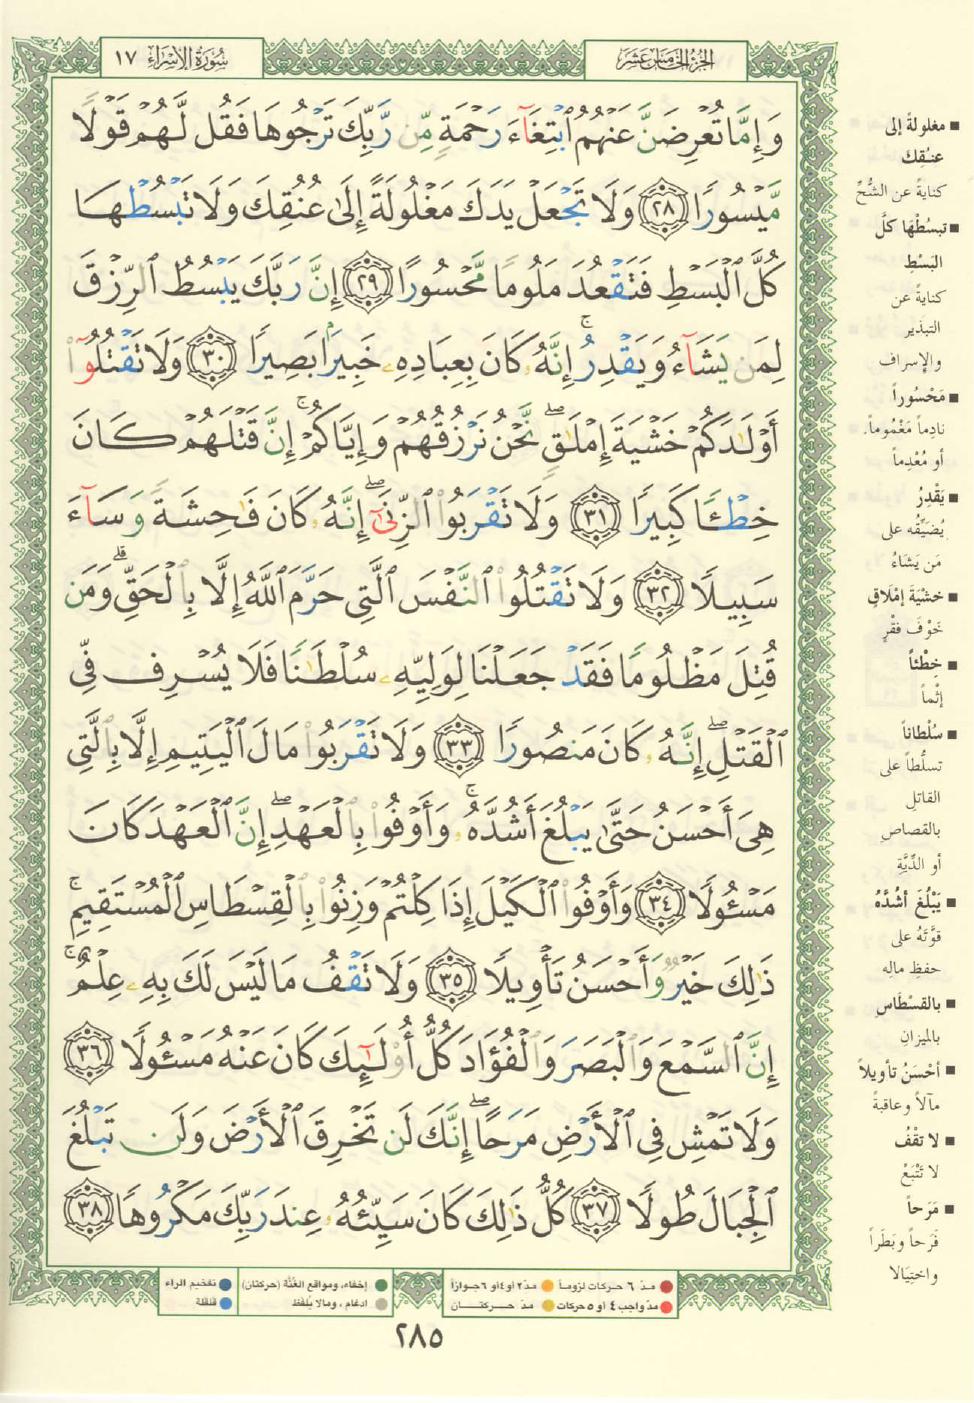 سُورَةُ الإِسْرَاء ١٧
الجُزءُ الخَامِسَ عَشَرَ
وَإِمَّا تُعْرِضَنَّ عَنْهُمُ ٱبْتِغَآءَ رَحْمَةٍ مِّن رَّبِّكَ تَرْجُوهَا فَقُل لَّهُمْ قَوْلًا
مَّيْسُورًا ٢٨ وَلَا تَجْعَلْ يَدَكَ مَغْلُولَةً إِلَىٰ عُنُقِكَ وَلَا تَبْسُطْهَا
كُلَّ ٱلْبَسْطِ فَتَقْعُدَ مَلُومًا مَّحْسُورًا ٢٩ إِنَّ رَبَّكَ يَبْسُطُ ٱلرِّزْقَ
لِمَن يَشَآءُ وَيَقْدِرُ ۚ إِنَّهُۥ كَانَ بِعِبَادِهِۦ خَبِيرًۢا بَصِيرًا ٣٠ وَلَا تَقْتُلُوٓا۟
أَوْلَٰدَكُمْ خَشْيَةَ إِمْلَٰقٍ ۖ نَّحْنُ نَرْزُقُهُمْ وَإِيَّاكُمْ ۚ إِنَّ قَتْلَهُمْ كَانَ
خِطْـًٔا كَبِيرًا ٣١ وَلَا تَقْرَبُوا۟ ٱلزِّنَىٰٓ ۖ إِنَّهُۥ كَانَ فَٰحِشَةً وَسَآءَ
سَبِيلًا ٣٢ وَلَا تَقْتُلُوا۟ ٱلنَّفْسَ ٱلَّتِى حَرَّمَ ٱللَّهُ إِلَّا بِٱلْحَقِّ ۗ وَمَن
قُتِلَ مَظْلُومًا فَقَدْ جَعَلْنَا لِوَلِيِّهِۦ سُلْطَٰنًا فَلَا يُسْرِف فِّى
ٱلْقَتْلِ ۖ إِنَّهُۥ كَانَ مَنصُورًا ٣٣ وَلَا تَقْرَبُوا۟ مَالَ ٱلْيَتِيمِ إِلَّا بِٱلَّتِى
هِىَ أَحْسَنُ حَتَّىٰ يَبْلُغَ أَشُدَّهُۥ ۚ وَأَوْفُوا۟ بِٱلْعَهْدِ ۖ إِنَّ ٱلْعَهْدَ كَانَ
مَسْـُٔولًا ٣٤ وَأَوْفُوا۟ ٱلْكَيْلَ إِذَا كِلْتُمْ وَزِنُوا۟ بِٱلْقِسْطَاسِ ٱلْمُسْتَقِيمِ ۚ
ذَٰلِكَ خَيْرٌ وَأَحْسَنُ تَأْوِيلًا ٣٥ وَلَا تَقْفُ مَا لَيْسَ لَكَ بِهِۦ عِلْمٌ ۚ
إِنَّ ٱلسَّمْعَ وَٱلْبَصَرَ وَٱلْفُؤَادَ كُلُّ أُو۟لَٰٓئِكَ كَانَ عَنْهُ مَسْـُٔولًا ٣٦
وَلَا تَمْشِ فِى ٱلْأَرْضِ مَرَحًا ۖ إِنَّكَ لَن تَخْرِقَ ٱلْأَرْضَ وَلَن تَبْلُغَ
ٱلْجِبَالَ طُولًا ٣٧ كُلُّ ذَٰلِكَ كَانَ سَيِّئُهُۥ عِندَ رَبِّكَ مَكْرُوهًا ٣٨
■ مغلولةً إلى
عنُقِك
كنايةً عن الشُّحِّ
■ تبسُطْهَا كلَّ
البَسْطِ
كنايةً عن
التبذير
والإسراف
■ مَحْسُوراً
نادِماً مَغْمُوماً.
أو مُعْدِماً
■ يَقْدِرُ
يُضيّقُه على
مَن يَشَاءُ
■ خشْيَةَ إمْلاقٍ
خَوْفَ فقْرٍ
■ خِطْئاً
إثْماً
■ سُلْطاناً
تسلُّطاً على
القاتِلِ
بالقصاصِ
أو الدِّيَّةِ
■ يَبْلُغَ أشُدَّهُ
قوَّتَهُ على
حفظِ مالِه
■ بالقسْطَاسِ
بالميزانِ
■ أحْسَنُ تأويلاً
مآلاً وعاقبةً
■ لا تقْفُ
لا تَتْبَعْ
■ مَرَحاً
فَرَحاً وبَطَراً
واختِيَالا
مدّ ٦ حركات لزوماً
مدّ ٢ أو ٤ أو ٦ جوازاً
مدّ واجب ٤ أو ٥ حركات
مدّ حركتان
إخفاء، ومواقع الغُنَّة (حركتان)
ادغام، وما لا يُلفَظ
تفخيم الراء
قلقلة
٢٨٥